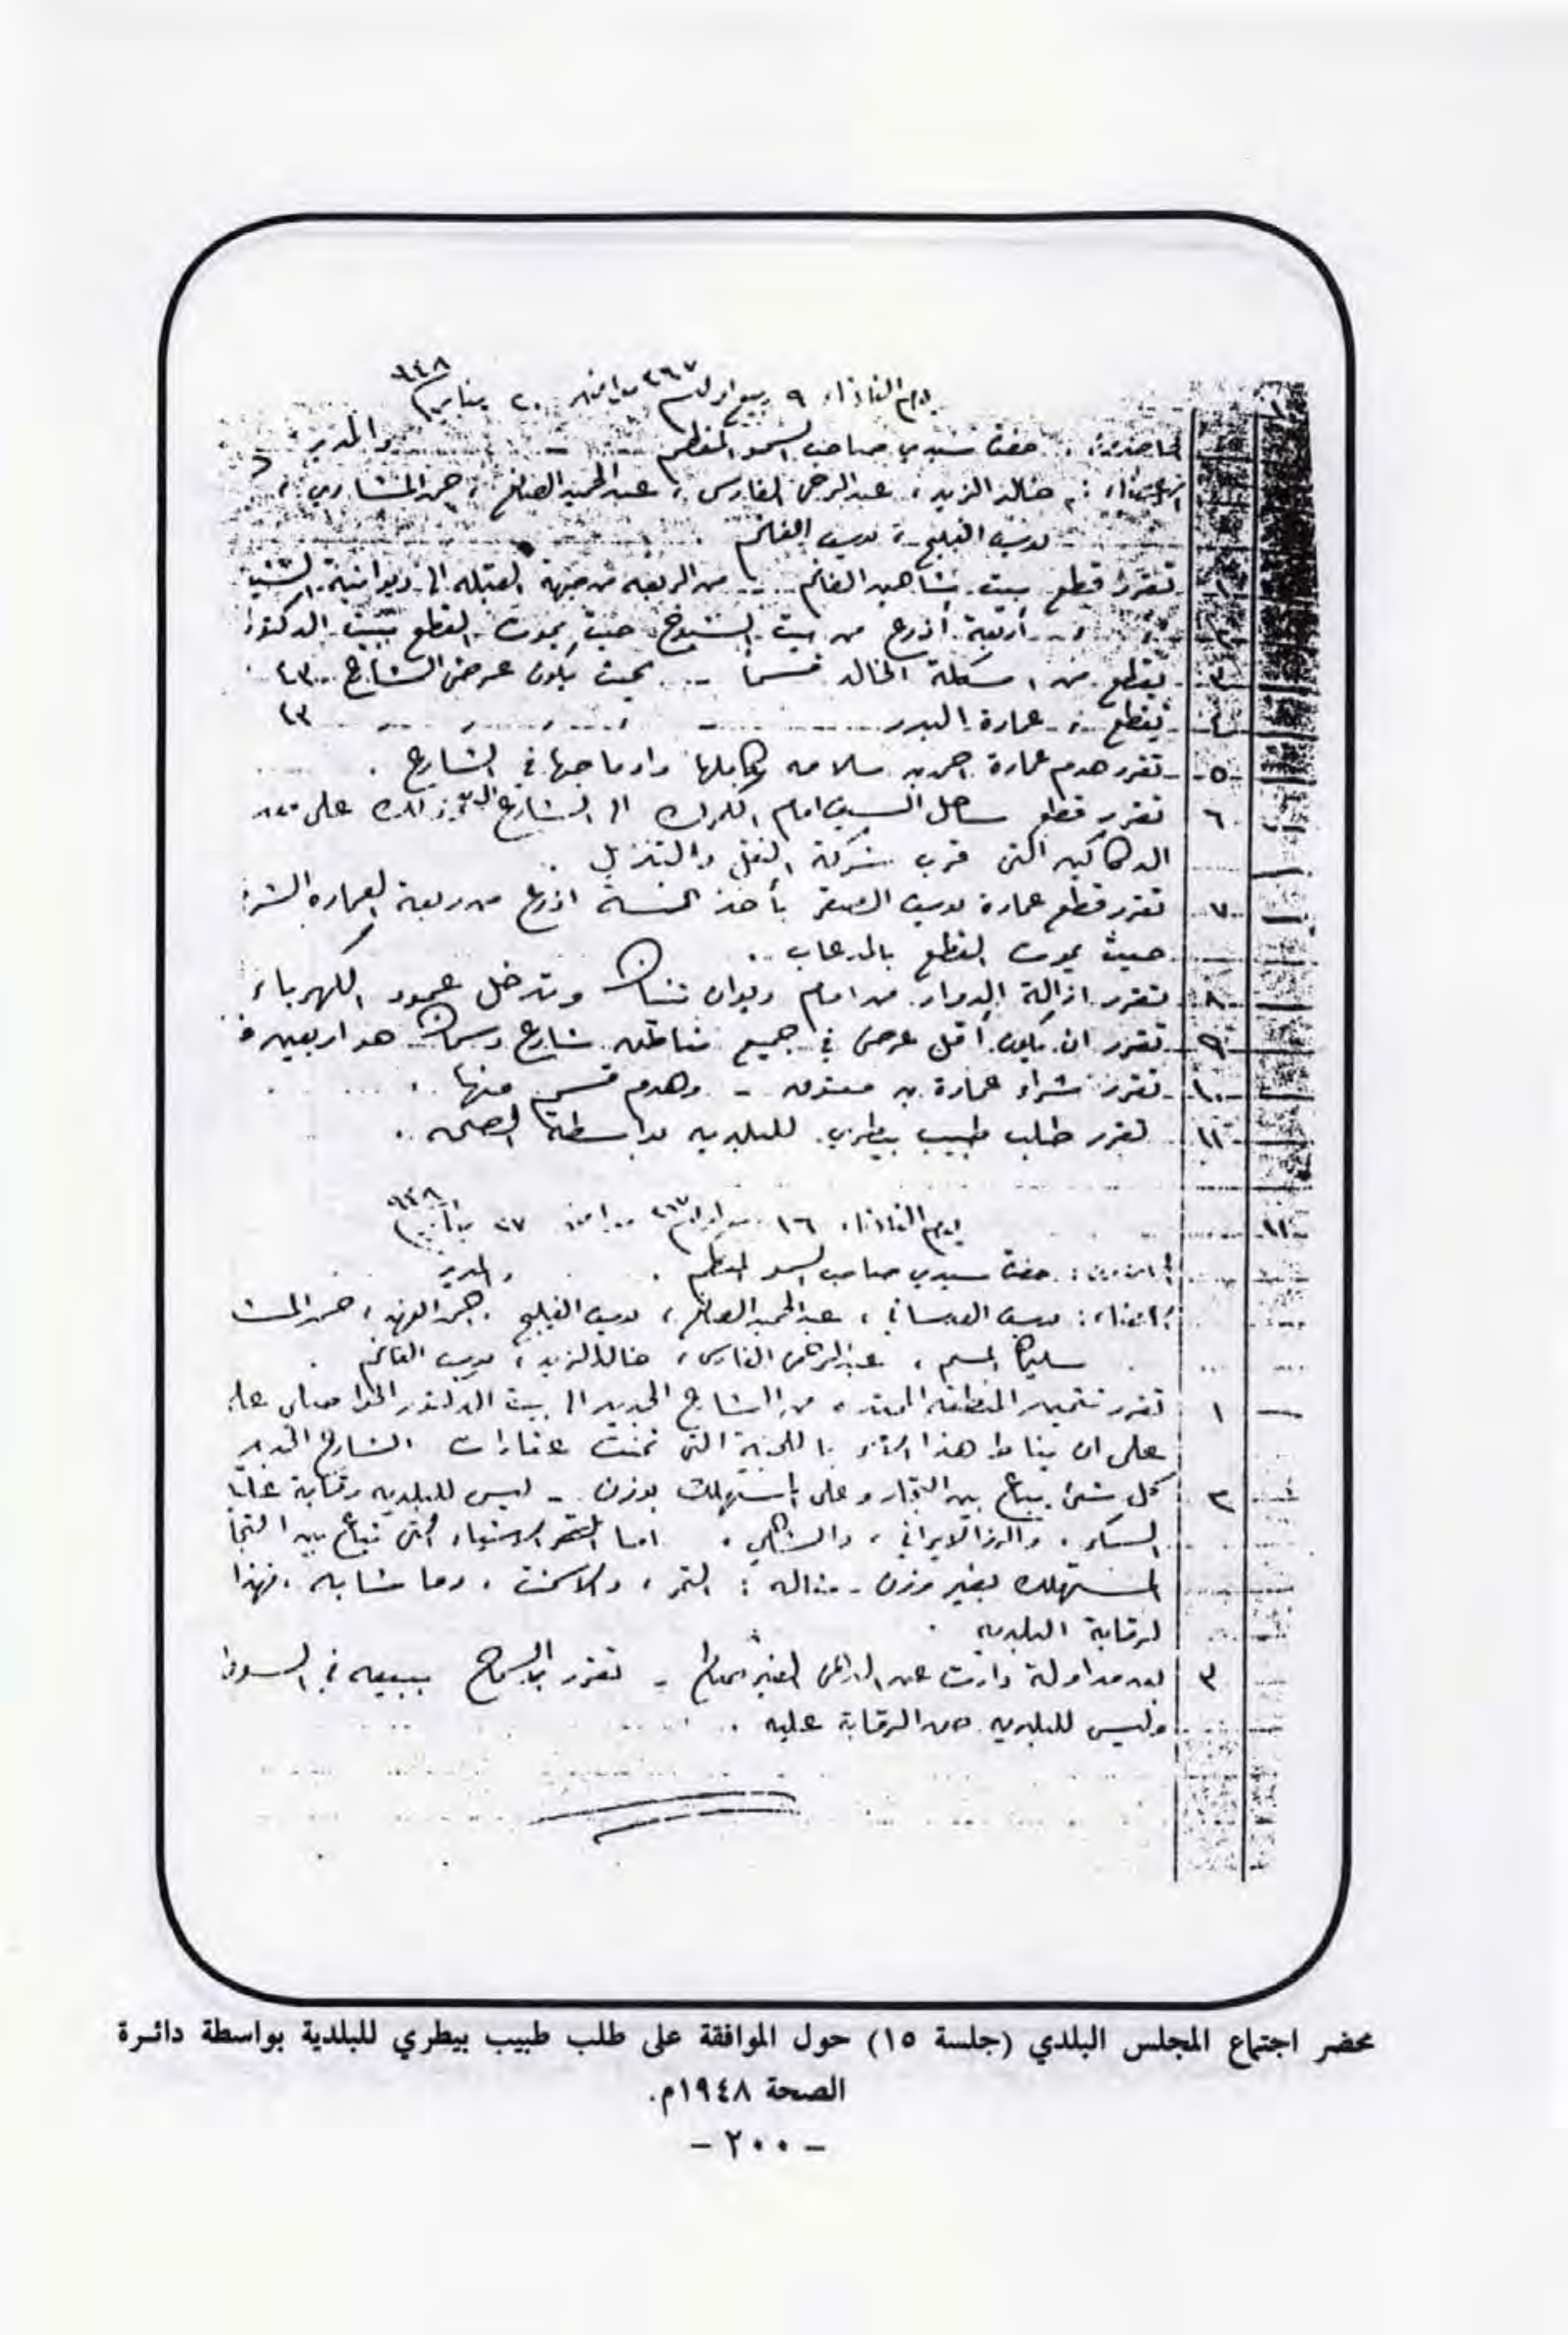 يوم الثلاثاء ٩ ربيع اول ٣٦٧ موافق ٢٠ يناير ٩٤٨
الحاضرون: حضرة سيدي صاحب السمو المعظم والمدير
الاعضاء: خالد الزيد، عبد الرحمن الفارس، عبد الحميد الصانع،
يوسف الفليج، يوسف الغانم
١ تقرر قطع بيت شاهين الغانم من الربعه من جهة القبله الى ديوانية
٢ أربعة أذرع من بيت الشيوخ حيث يموت القطع ببيت الدكتور
٣ يقطع من اسكلة الخالد قسما بحيث يكون عرض الشارع ٤٣
٤ يقطع عمارة البدر ٤٣
٥ تقرر هدم عمارة احمد بن سلامه بكاملها وادماجها في الشارع.
٦ تقرر قطع ساحل السيف امام الكمرك الى الشارع على
الدكاكين التى قرب شركة النقل والتنزيل.
٧ تقرر قطع عمارة يوسف الصقر بأخذ خمسة اذرع من ربعة العماره
حيث يموت القطع
٨ تقرر ازالة الدوار من امام ديوان ويدخل عمود الكهرباء
٩ تقرر ان يكون أقل عرض في جميع مناطق شارع دسمان هو اربعين
١٠ تقرر شراء عمارة بن معتوق - وهدم قسم منها.
١١ تقرر طلب طبيب بيطري للبلديه بواسطة الصحه.
١٦ يوم الثلاثاء ١٦ ربيع اول ٣٦٧ موافق ٢٧ يناير ٩٤٨
الحاضرون: حضرة سيدي صاحب السمو المعظم. والمدير
الاعضاء: يوسف العدساني، عبد الحميد الصانع، يوسف الفليج،
المسلم، عبد الرحمن الفارس، خالد الزيد، يوسف الغانم.
١ تقرر تثمين المنطقه الممتده من الشارع الجديد الى بيت الدكتور
على ان يناط هذا باللجنة التى ثمنت عقارات الشارع الجديد
٢ كل شئ يباع بين التجار وعلى المستهلك بوزن - ليس للبلديه رقابة
السكر، والرز الايراني، اما الاشياء التى تباع بين
المستهلك بغير وزن - مثاله: التمر، والاسمنت، وما شابه، فهذا
لرقابة البلديه.
٣ بعد مداولة دارت عن - تقرر السماح ببيعه في السوق
وليس للبلديه حق الرقابة عليه.
محضر اجتماع المجلس البلدي (جلسة ١٥) حول الموافقة على طلب طبيب بيطري للبلدية بواسطة دائرة
الصحة ١٩٤٨م.
- ٢٠٠ -